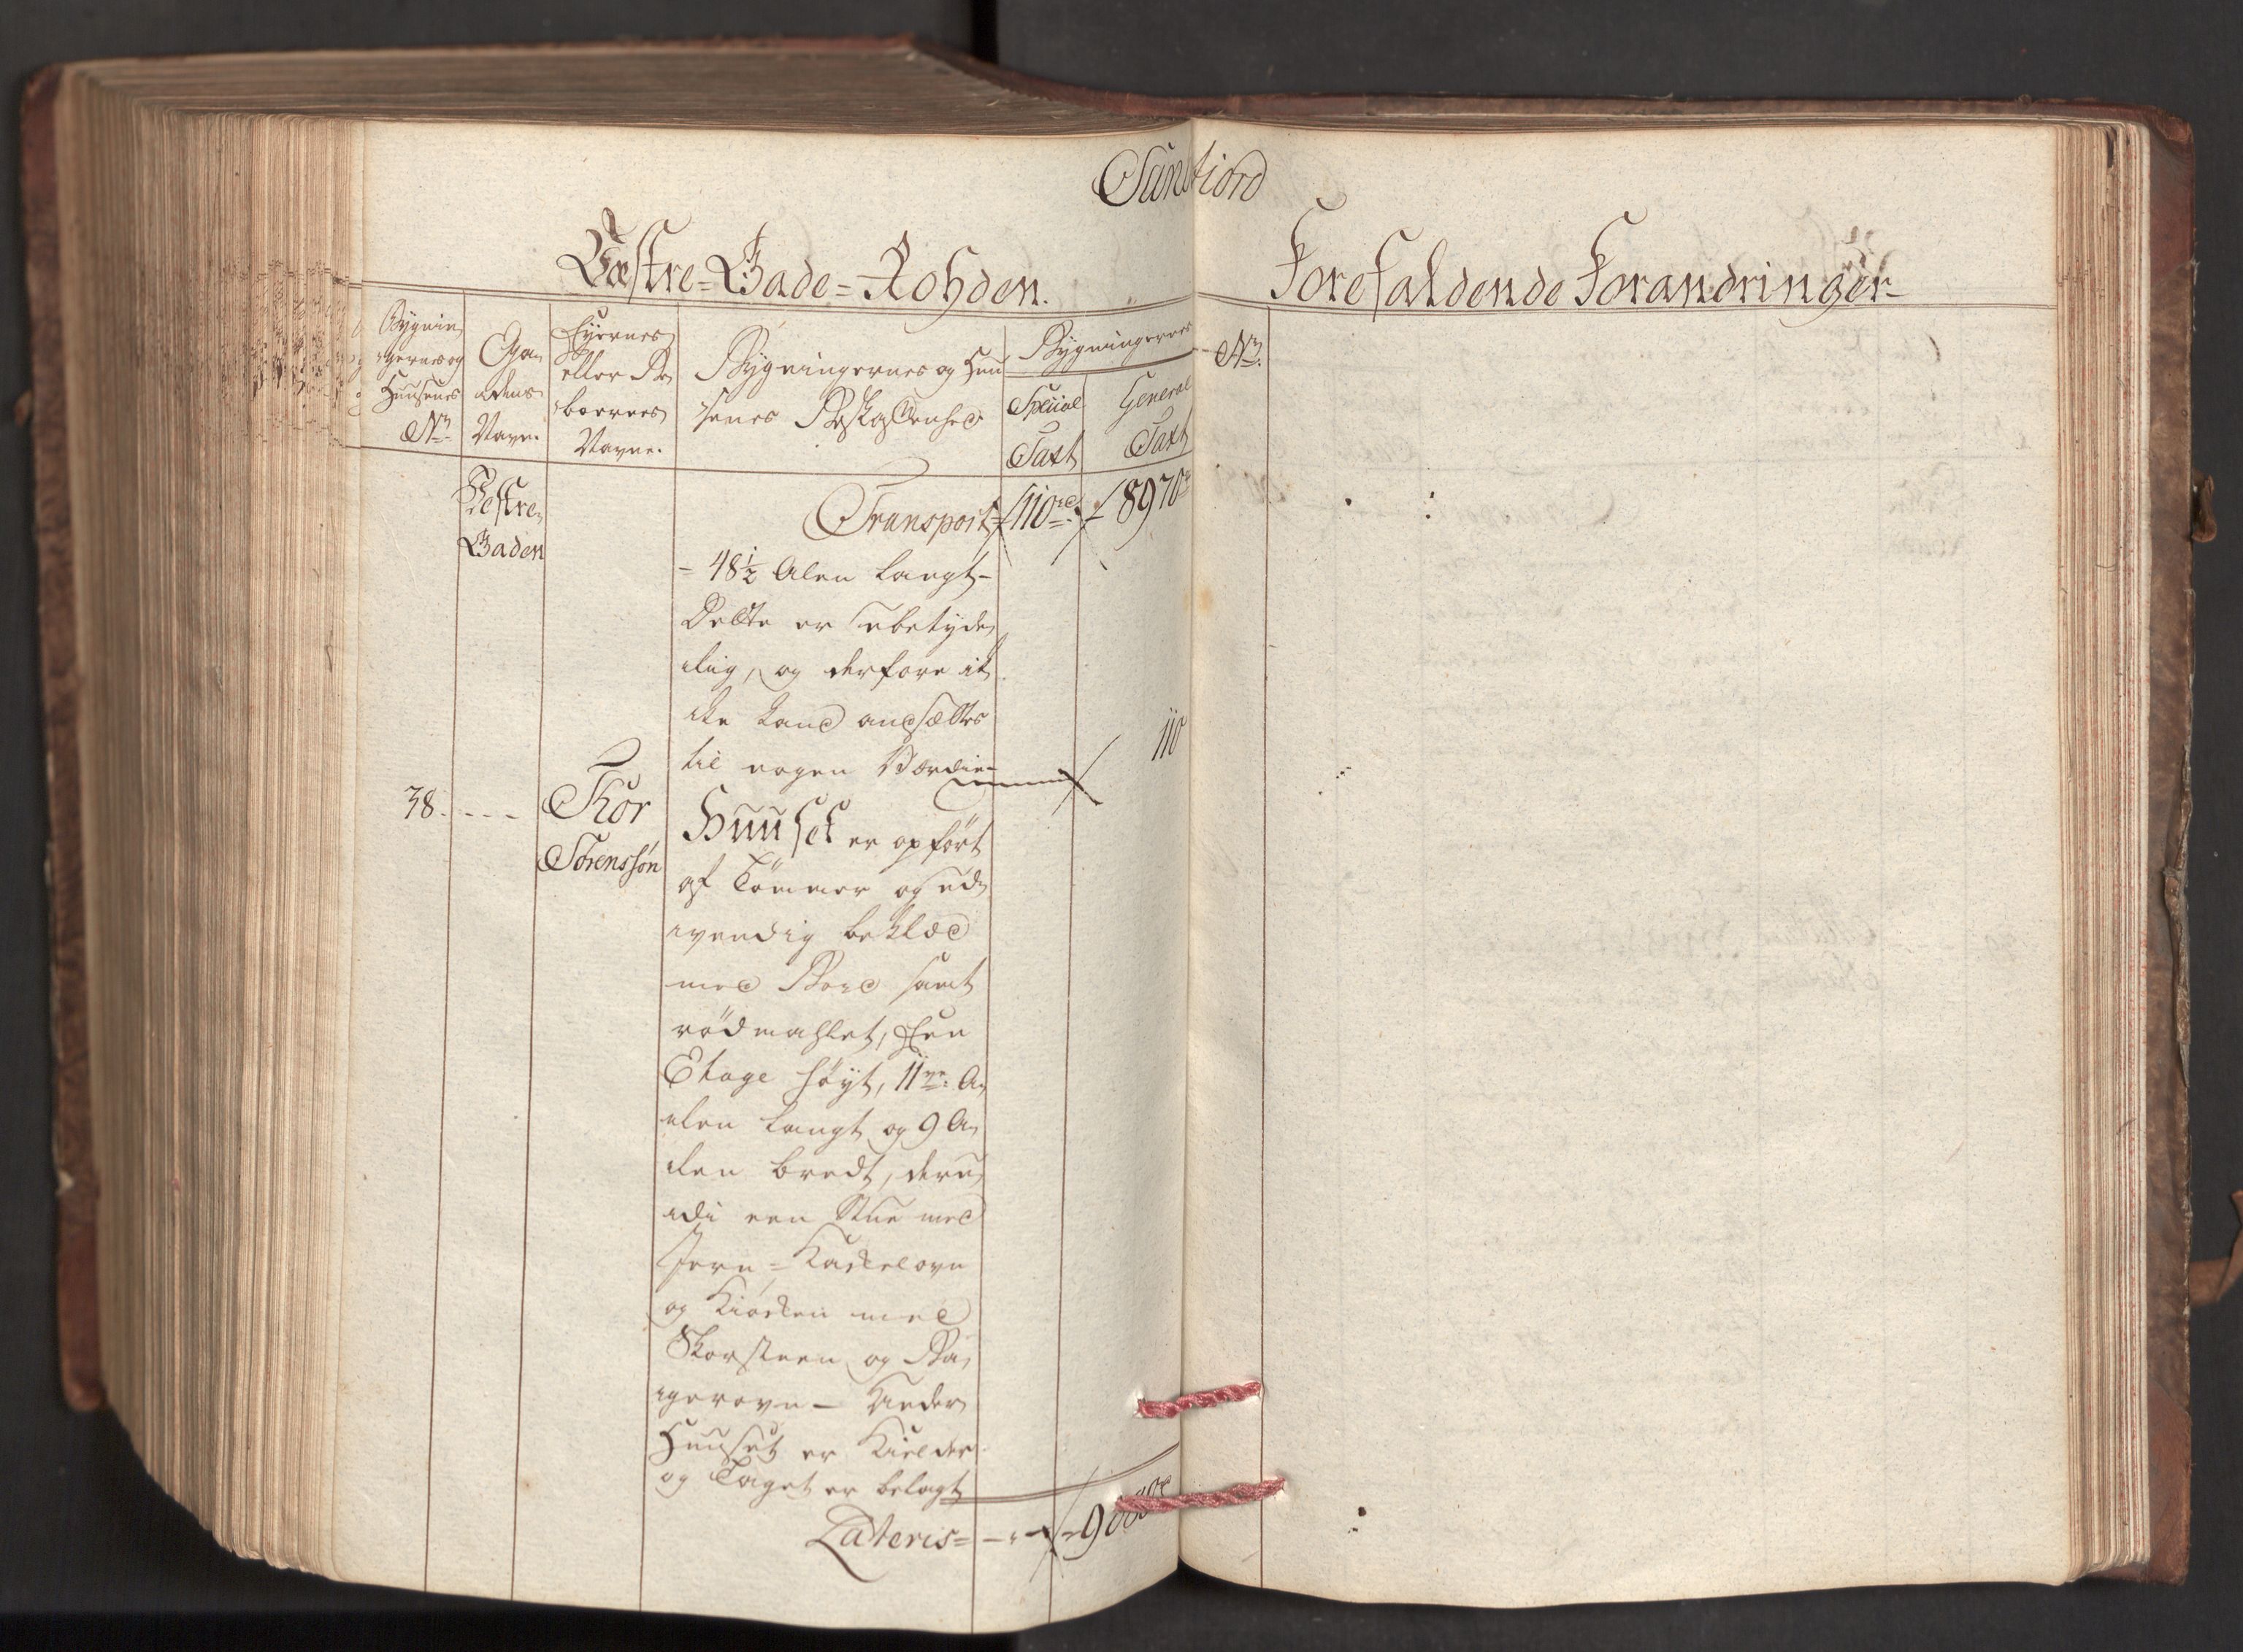 Sandfiord
Væstre=Gade=Rohden.
Forefaldende Forandringer
Bygnin
gernes og
Huusenes
No.
Ga
dens
Navn.
Eyernes
eller Be
boernes
Navne.
Bygningernes og Huu
senes Beskaffenhed
Bygningernes
Special
Taxt
General
Taxt
No.
Vestre
Gaden
Transport
110 rd
8970 r
- 48 1/2 Alen Langt-
Dette er ubetyde
lig, og derfore ik
ke kand andsættes
til nogen Værdie
110
38. - - -
Thor
Sörenssön
Huuset er opfört
af Tömmer og ud
vendig beklæd
med Bord samt
rödmahlet, Een
Etage höyt, 11ve A
len Langt og 9 A
len bredt, deru
di een Stue med
Jern=Kackelovn
og Kiöcken med
Skorsteen og Ba
gerovn - Under
Huuset er Kielder
og Taget er belagt
Lateris=
9080 r